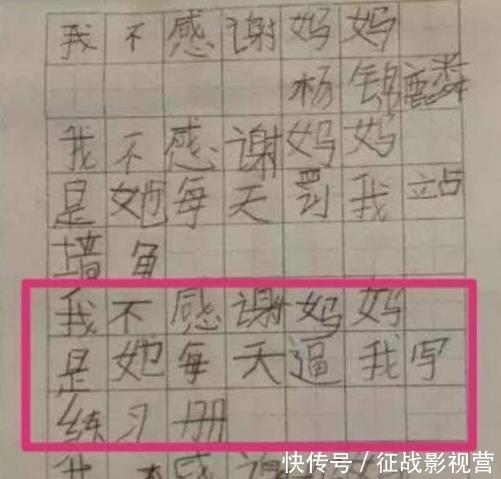 我不感谢妈妈
杨锦麟
我不感谢妈妈
是她每天罚我站
墙角
我不感谢妈妈
是她每天逼我写
练习册
我不感谢
快传号／征战影视营